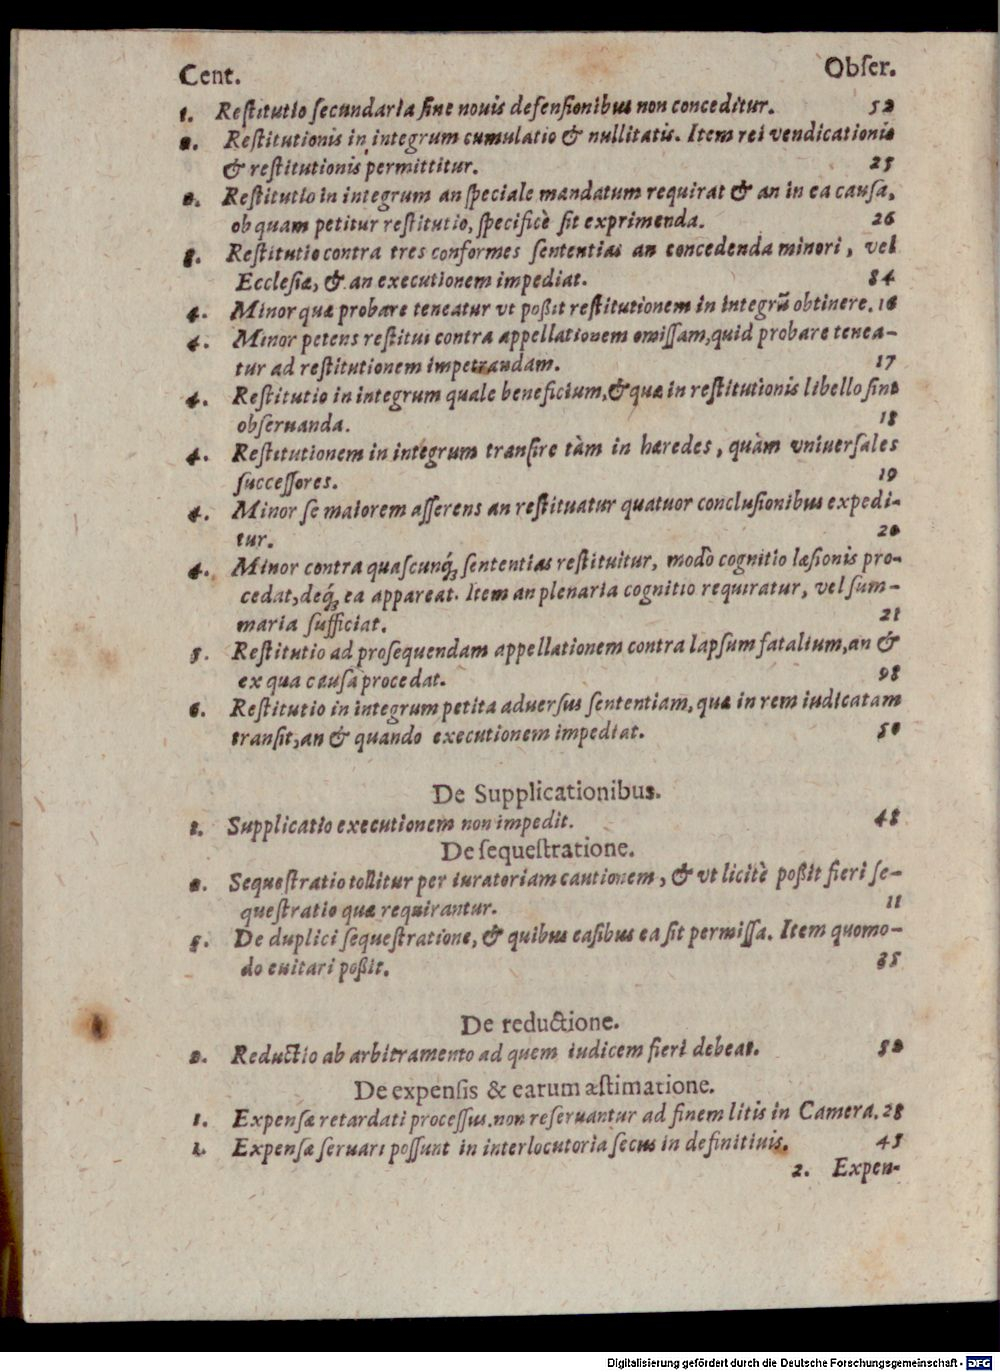 Cent. Obſer.
1. Reſtitutio ſecundaria ſine nouis defenſionibus non conceditur. 52
2. Reſtitutionis in integrum cumulatio & nullitatis. Item rei vendicationis
& reſtitutionis permittitur. 25
2. Reſtitutio in integrum an ſpeciale mandatum requirat & an in ea cauſa,
ob quam petitur reſtitutio, ſpecificè ſit exprimenda. 26
Reſtitutio contra tres conformes ſententias an concedenda minori, vel
Eccleſiæ, & an executionem impediat. 84
4. Minor quæ probare teneatur vt poßit reſtitutionem in integrũ obtinere. 16
4. Minor petens reſtitui contra appellationem omiſſam, quid probare tenea-
tur ad reſtitutionem impetrandam. 17
4. Reſtitutio in integrum quale beneficium, & quæ in reſtitutionis libello ſint
obſeruanda. 18
4. Reſtitutionem in integrum tranſire tàm in hæredes, quàm vniuerſales
ſucceſſores. 19
4. Minor ſe maiorem aſſerens an reſtituatur quatuor concluſionibus expedi-
tur. 20
4. Minor contra quaſcunq́; ſententias reſtituitur, modò cognitio læſionis pro-
cedat, deq́; ea appareat. Item an plenaria cognitio requiratur, vel ſum-
maria ſufficiat. 21
5. Reſtitutio ad proſequendam appellationem contra lapſum fatalium, an &
ex qua cauſa procedat. 98
6. Reſtitutio in integrum petita aduerſus ſententiam, quæ in rem iudicatam
tranſit, an & quando executionem impediat. 50
De Supplicationibus.
1. Supplicatio executionem non impedit. 48
De ſequeſtratione.
2. Sequeſtratio tollitur per iuratoriam cautionem, & vt licitè poßit fieri ſe-
queſtratio quæ requirantur. 11
5. De duplici ſequeſtratione, & quibus caſibus ea ſit permiſſa. Item quomo-
do euitari poßit. 35
De reductione.
2. Reductio ab arbitramento ad quem iudicem fieri debeat. 52
De expenſis & earum æſtimatione.
1. Expenſæ retardati proceſſus. non reſeruantur ad finem litis in Camera. 28
1. Expenſæ ſeruari poſſunt in interlocutoria ſecus in definitiuis. 45
2. Expen-
Digitalisierung gefördert durch die Deutsche Forschungsgemeinschaft - DFG